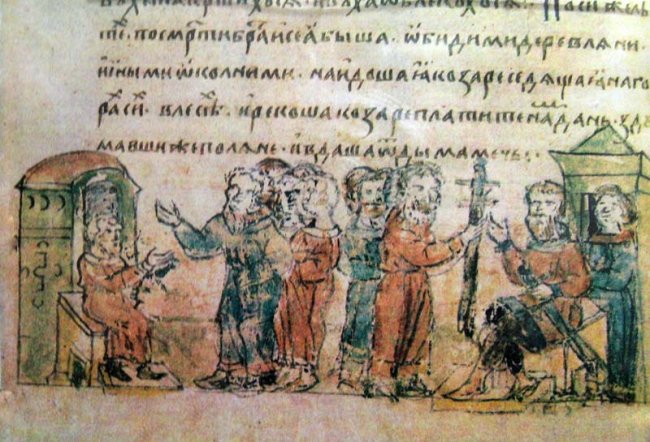 По си
тѣ. по смрти бра сеꙗ быша. ѡбидими деревлѧни.
инымі ѡколними. наидоша ꙗ козаре седѧща на го
ра си в лесѣ. и рекоша козаре платите на дань. здѹ
мавши же полѧне. и вдаша ѿ дыма мечь: